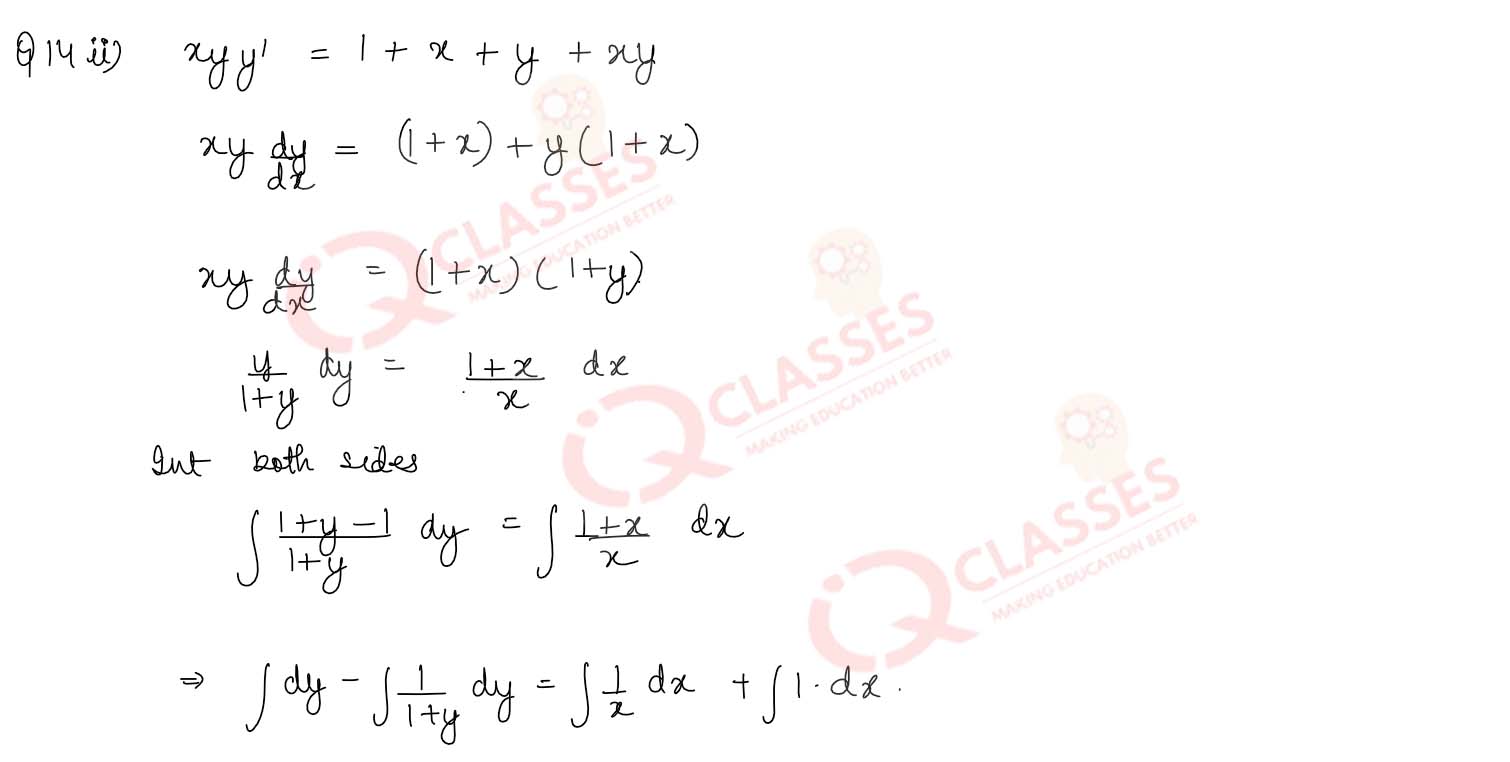 Q14 ii) xyy' = 1 + x + y + xy
xy dy/dx = (1+x) + y(1+x)
xy dy/dx = (1+x)(1+y)
y/(1+y) dy = (1+x)/x dx
Int both sides
∫ (1+y-1)/(1+y) dy = ∫ (1+x)/x dx
⇒ ∫ dy - ∫ 1/(1+y) dy = ∫ 1/x dx + ∫ 1·dx.
iQ CLASSES
MAKING EDUCATION BETTER
iQ CLASSES
MAKING EDUCATION BETTER
iQ CLASSES
MAKING EDUCATION BETTER